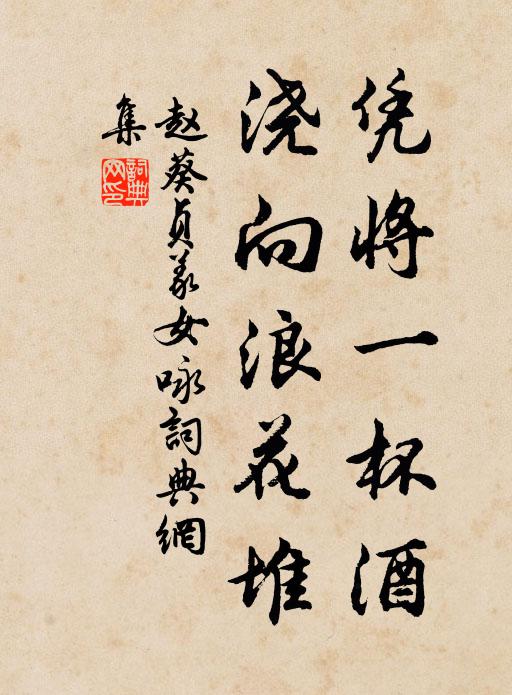 凭将一杯酒
浇向浪花堆
赵葵贞义女咏詞典網
集
詞典
网印